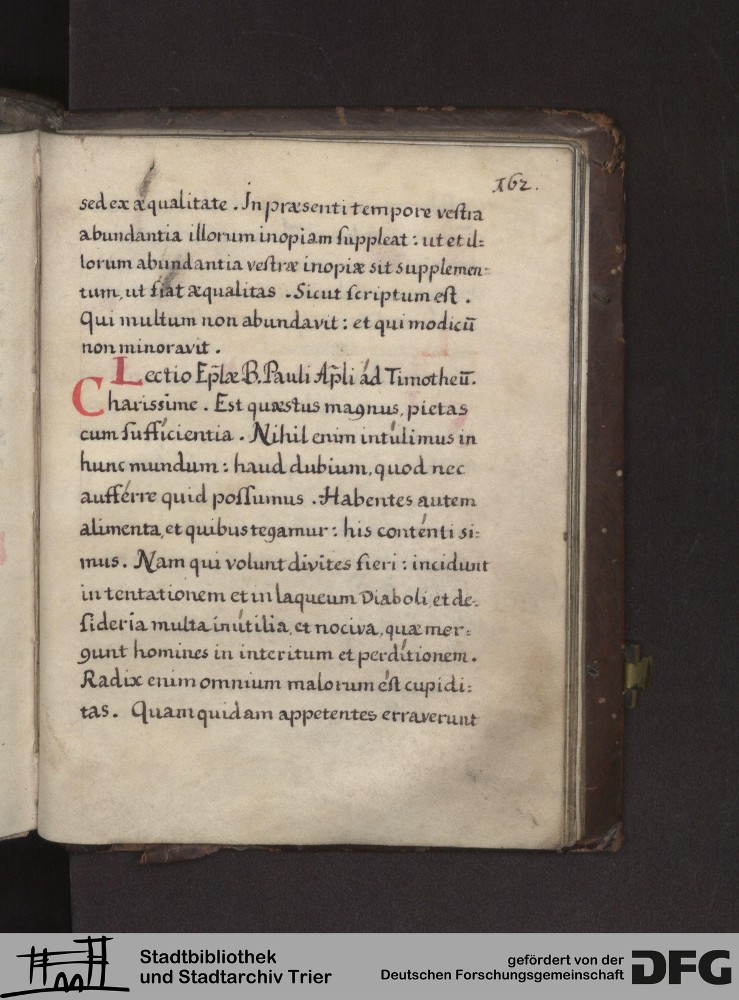 162.
sed ex æqualitate. In præsenti tempore vestra
abundantia illorum inopiam suppleat: ut et il=
lorum abundantia vestræ inopiæ sit supplemen=
tum, ut fiat æqualitas. Sicut scriptum est.
Qui multum non abundavit: et qui modicū
non minoravit.
Lectio Ep̃læ B. Pauli Ap̃li ád Timotheū.
Charissime. Est quæstus magnus, pietas
cum sufficientia. Nihil enim intúlimus in
hunc mundum: haud dubium, quod nec
aufférre quid possumus. Habentes autem
alimenta, et quibus tegamur: his conténti si=
mus. Nam qui volunt divites fieri: incidunt
in tentationem et in laqueum Diaboli, et de=
sideria multa inútilia, et nociva, quæ mer=
gunt homines in interitum et perdítionem.
Radix enim omnium malorum ést cupidi=
tas. Quam quidam appetentes erraverunt
Stadtbibliothek
und Stadtarchiv Trier
gefördert von der
Deutschen Forschungsgemeinschaft
DFG